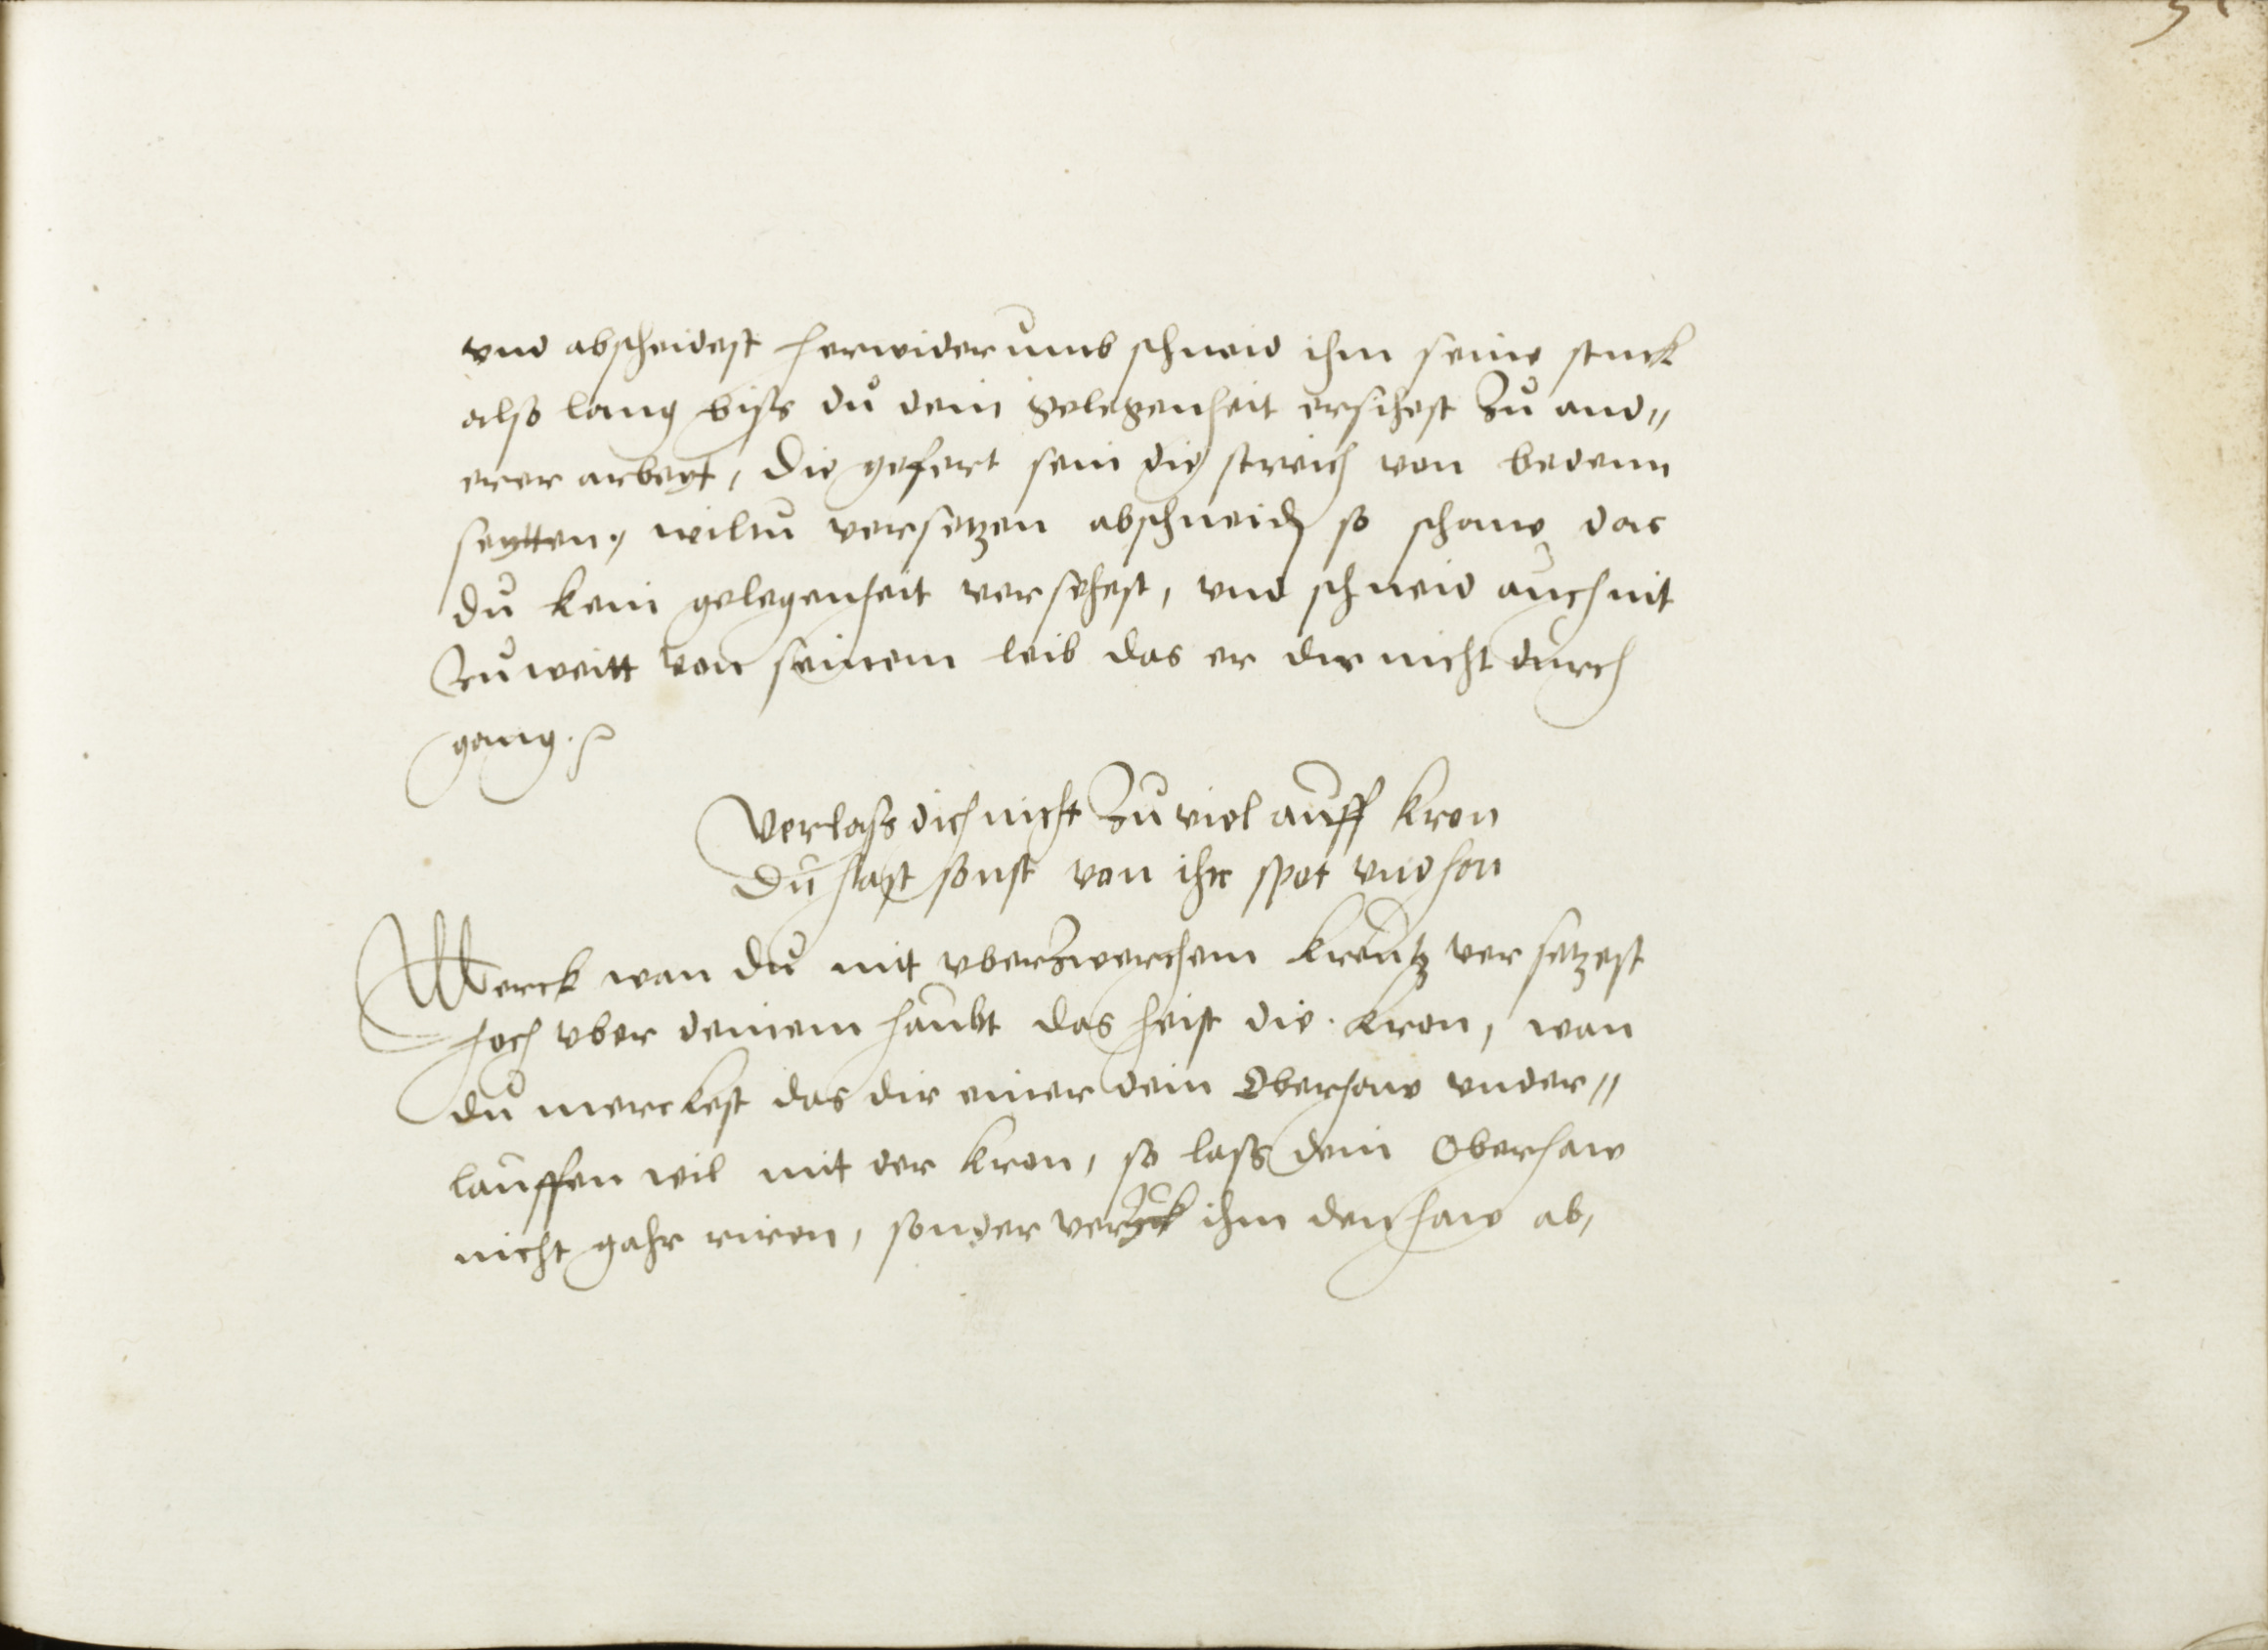 vnd abscheidest herwiderumb schneid ihm seine stuck
also lang biss du dein gelegenheit ersihest zu and„
erer arbeyt, die gefert sein die streich von bedenn
seytten, wiltu versetzen abschneiden so schauw das
du kein gelegenheit versihest, vnd schneid auch nit
zu weitt von seinem leib das er dir nicht durch
gang.
Verlass dich nicht zu viel auff kron
du hast sonst von ihr spot vnd hon
Merck wan du mit vberzwerchem kreutz versetzest
hoch vber deinem haubt das heist die kron, wan
du merckest das dir einer dein Oberhauw vnder„
lauffen wil mit der kron, so lass dein Oberhaw
nicht gahr riren, sonder verzuck ihm den haw ab,